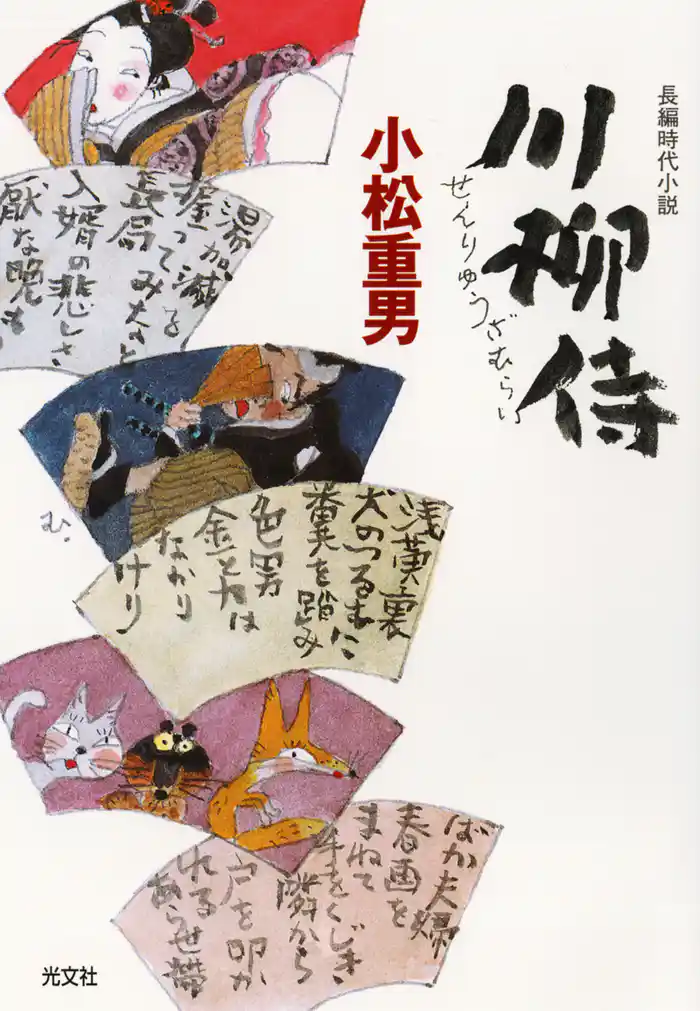 長編時代小説
川柳侍
せんりゅうざむらい
小松重男
長局
入婿の悲しさ
厭な晩も
む
浅黄裏
犬のつるむに
糞を踏み
色男
金と力は
なかり
けり
ばか夫婦
春画を
まねて
手をくじき
隣から
戸を叩か
れる
あら世帯
光文社